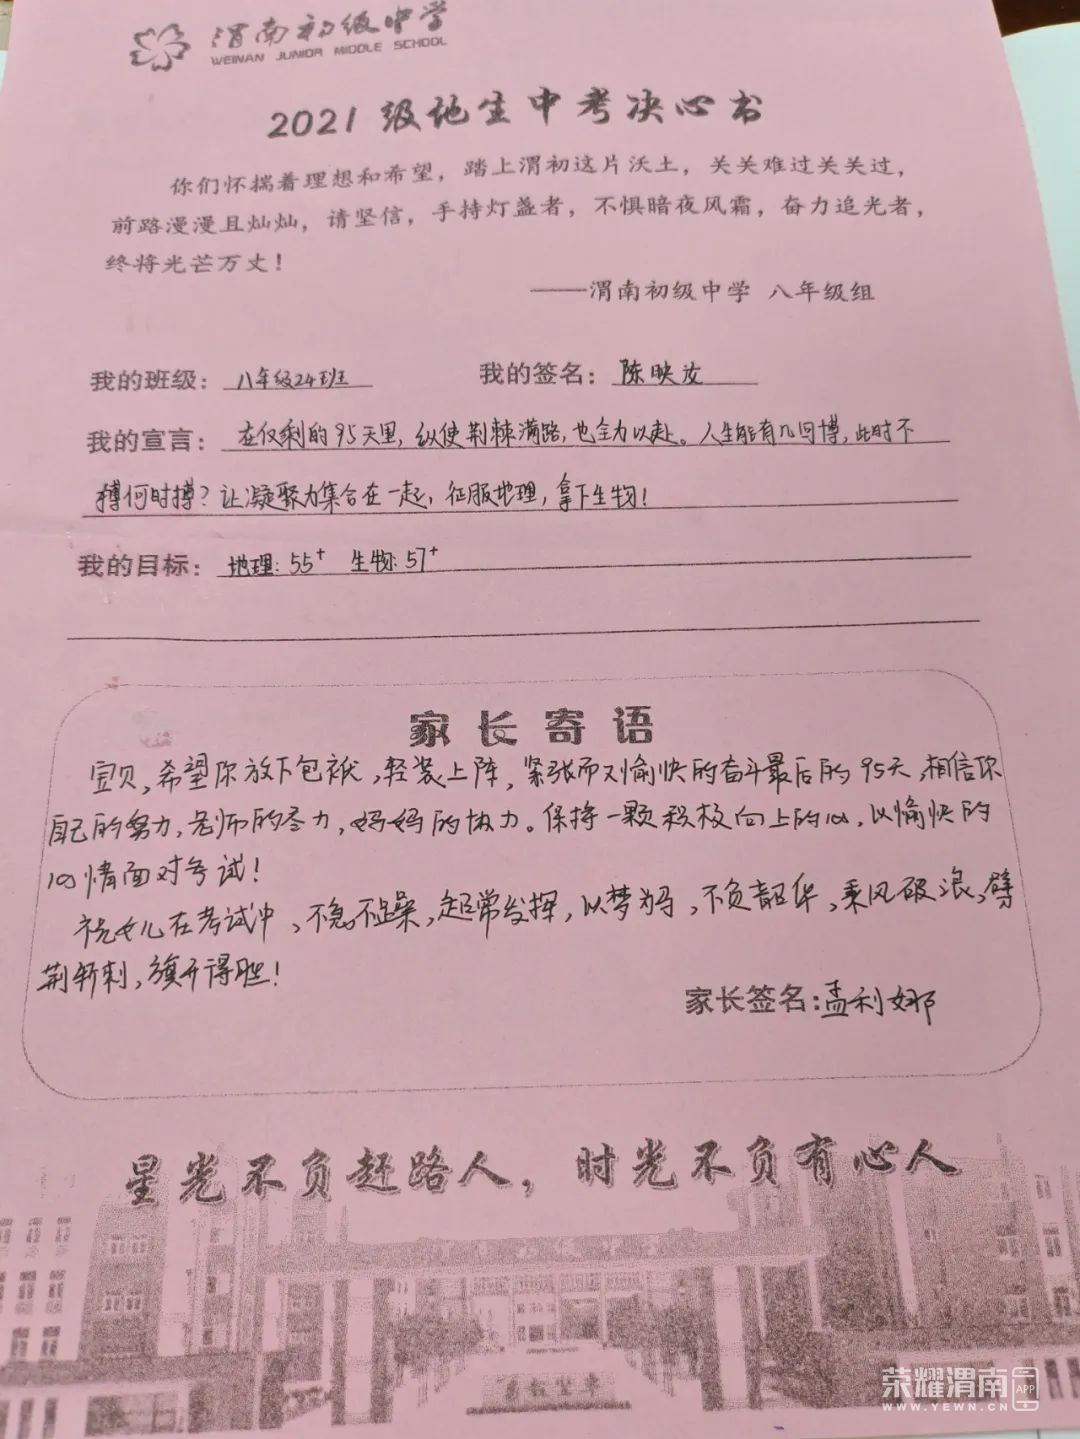 渭南初级中学
WEINAN JUNIOR MIDDLE SCHOOL
2021级地生中考决心书
你们怀揣着理想和希望，踏上渭初这片沃土，关关难过关关过，
前路漫漫且灿灿，请坚信，手持灯盏者，不惧暗夜风霜，奋力追光者，
终将光芒万丈！
——渭南初级中学 八年级组
我的班级：八年级24班 我的签名：陈映汝
我的宣言：在仅剩的95天里，纵使荆棘满路，也全力以赴。人生能有几回博，此时不
搏何时搏？让凝聚力集合在一起，征服地理，拿下生物！
我的目标：地理：55+ 生物：57+
家长寄语
宝贝，希望你放下包袱，轻装上阵，紧张而又愉快的奋斗最后的95天，相信你
自己的努力，老师的尽力，妈妈的协力。保持一颗积极向上的心，以愉快的
心情面对考试！
祝女儿在考试中，不急不躁，超常发挥，以梦为马，不负韶华，乘风破浪，劈
荆斩刺，旗开得胜！
家长签名：孟利娜
星光不负赶路人，时光不负有心人
荣耀渭南APP
WWW.YEWN.CN